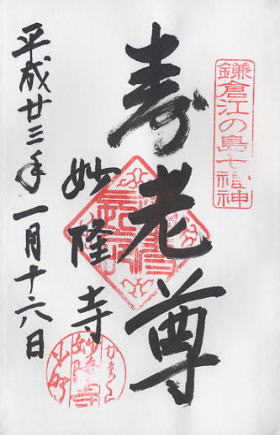 鎌倉江の島七福神
寿老尊
妙隆寺
平成廿三年一月十六日
かまくら
妙隆寺
小町